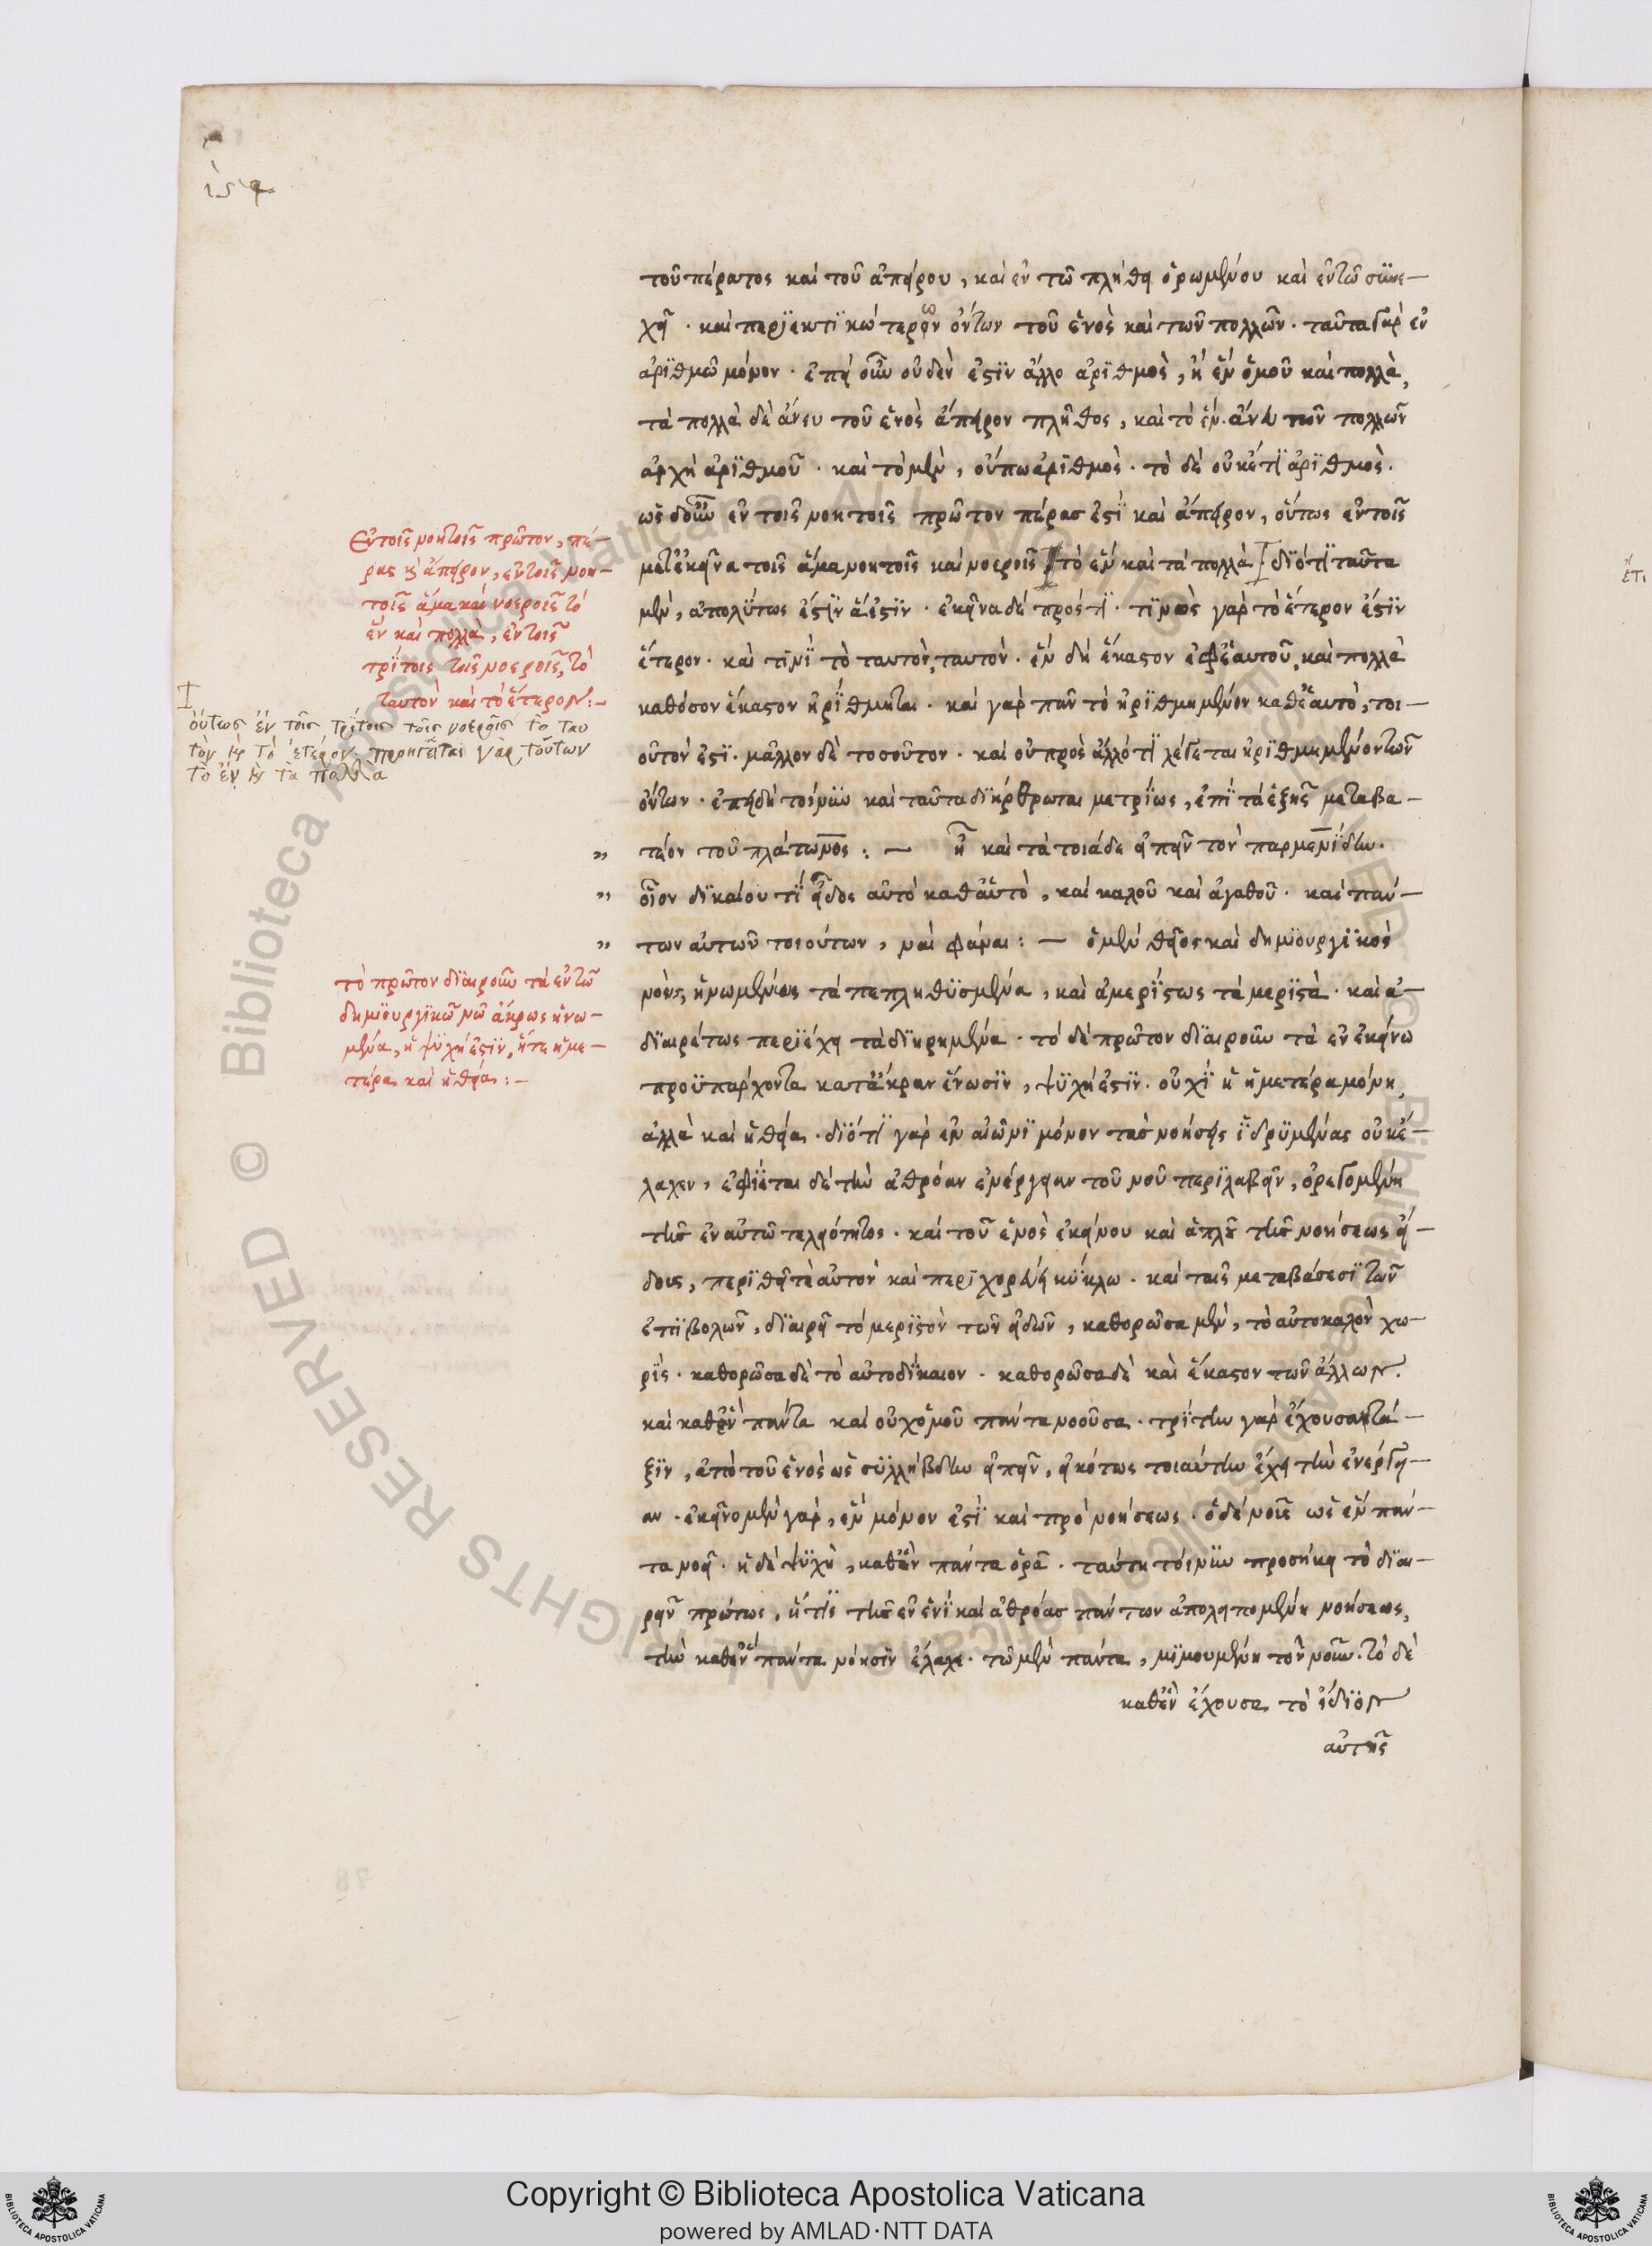 τοῦ πέρατος καὶ τοῦ ἀπείρου, καὶ ἐν τῶ πλήθει ὁρωμένου καὶ ἐν τῶ συνε-
χεῖ · καὶ περιεκτικώτερον ὄντων τοῦ ἑνὸς καὶ τῶν πολλῶν · ταῦτα γὰρ ἐν
ἀριθμῶ μόνον · ἐπεὶ οὖν οὐδὲν ἐστὶν ἄλλο ἀριθμὸς, ἢ ἓν ὁμοῦ καὶ πολλὰ,
τὰ πολλὰ δὲ ἄνευ τοῦ ἑνὸς ἄπειρον πλῆθος, καὶ τὸ ἓν ἄνευ τῶν πολλῶν
ἀρχὴ ἀριθμοῦ · καὶ τὸ μὲν, οὔπω ἀριθμὸς · τὸ δὲ οὐκέτι ἀριθμὸς.
ὡς δ' οὖν ἐν τοῖς νοητοῖς πρῶτον πέρας ἐστὶ καὶ ἄπειρον, οὕτως ἐν τοῖς
μετ' ἐκεῖνα τοῖς ἅμα νοητοῖς καὶ νοεροῖς τὸ ἓν καὶ τὰ πολλὰ διότι ταῦτα
μὲν, ἀπολύτως ἐστὶν ἅ ἐστιν · ἐκεῖνα δὲ πρός τι · τινὸς γὰρ τὸ ἕτερον ἐστὶν
ἕτερον · καὶ τινὶ τὸ ταυτὸν, ταυτὸν · ἓν δὴ ἕκαστον ἐφ' ἑαυτοῦ, καὶ πολλὰ
καθόσον ἕκαστον ἠρίθμηται · καὶ γὰρ πᾶν τὸ ἠριθμημένον καθ' ἑαυτὸ, τοι-
οῦτον ἐστὶ · μᾶλλον δὲ τοσοῦτον · καὶ οὐ πρὸς ἄλλό τι λέγεται ἠριθμημένον τῶν
ὄντων · ἐπειδὴ τοίνυν καὶ ταῦτα διήρθρωται μετρίως, ἐπὶ τὰ ἑξῆς μεταβα-
τέον τοῦ πλάτωνος : — ἦ καὶ τὰ τοιάδε εἰπεῖν τὸν παρμενίδην.
οἷον δικαίου τί εἶδος αὐτὸ καθ' αὑτὸ, καὶ καλοῦ καὶ ἀγαθοῦ · καὶ πάν-
των αὐτῶν τοιούτων, ναὶ φάναι : — ὁ μὲν θεῖος καὶ δημιουργικὸς
νοῦς, ἡνωμένως τὰ πεπληθυσμένα, καὶ ἀμερίστως τὰ μεριστὰ · καὶ ἀ-
διαιρέτως περιέχει τὰ διῃρημένα · τὸ δὲ πρῶτον διαιροῦν τὰ ἐν ἐκείνω
προϋπάρχοντα κατ' ἄκραν ἕνωσιν, ψυχή ἐστιν · οὐχὶ ἡ ἡμετέρα μόνη,
ἀλλὰ καὶ ἡ θεία · διότι γὰρ ἐν αἰῶνι μόνον τὰς νοήσεις ἱδρυμένας οὐκ ἔ-
λαχεν, ἐφίεται δὲ τὴν ἀθρόαν ἐνέργειαν τοῦ νοῦ περιλαβεῖν, ὀρεγομένη
τῆς ἐν αὐτῶ τελειότητος · καὶ τοῦ ἑνὸς ἐκείνου καὶ ἁπλοῦ τῆς νοήσεως εἴ-
δους, περιθεῖ τὲ αὐτὸν καὶ περιχορεύει κύκλω · καὶ ταῖς μεταβάσεσι τῶν
ἐπιβολῶν, διαιρεῖ τὸ μεριστὸν τῶν εἰδῶν, καθορῶσα μὲν, τὸ αὐτοκαλὸν χω-
ρὶς · καθορῶσα δὲ τὸ αὐτοδίκαιον · καθορῶσα δὲ καὶ ἕκαστον τῶν ἄλλων.
καὶ καθ' ἓν πάντα καὶ οὐχ ὁμοῦ πάντα νοοῦσα · τρίτην γὰρ ἔχουσα τά-
ξιν, ἀπὸ τοῦ ἑνὸς ὡς συλλήβδην εἰπεῖν, εἰκότως τοιαύτην ἔχει τὴν ἐνέργει-
αν · ἐκεῖνο μὲν γὰρ, ἓν μόνον ἐστὶ καὶ πρὸ νοήσεως · ὁ δὲ νοῦς ὡς ἓν πάν-
τα νοεῖ · ἡ δὲ ψυχὴ, καθ' ἓν πάντα ὁρᾶ · ταύτη τοίνυν προσήκει τὸ διαι-
ρεῖν πρώτως, ἥτις τῆς ἐν ἑνὶ καὶ ἀθρόας πάντων ἀπολειπομένη νοήσεως,
τὴν καθ' ἓν πάντα νόησιν ἔλαχε · τῶ μὲν πάντα, μιμουμένη τὸν νοῦν · τὸ δὲ
καθ' ἓν ἔχουσα τὸ ἴδιον
αὐτῆς
Ἐν τοῖς νοητοῖς πρῶτον, πέ-
ρας καὶ ἄπειρον, ἐν τοῖς νοη-
τοῖς ἅμα καὶ νοεροῖς τὸ
ἓν καὶ πολλὰ, ἐν τοῖς
τρίτοις τοῖς νοεροῖς, τὸ
ταυτὸν καὶ τὸ ἕτερον :-
οὕτως ἐν τοῖς τρίτοις τοῖς νοεροῖς τὸ ταυ
τὸν καὶ τὸ ἕτερον · προηγεῖται γὰρ τούτων
τὸ ἓν καὶ τὰ πολλὰ
τὸ πρῶτον διαιροῦν τὰ ἐν τῶ
δημιουργικῶ νῶ ἄκρως ἡνω-
μένα, ἡ ψυχή ἐστιν, ἥτε ἡμε-
τέρα καὶ ἡ θεία :-
Copyright © Biblioteca Apostolica Vaticana
powered by AMLAD·NTT DATA